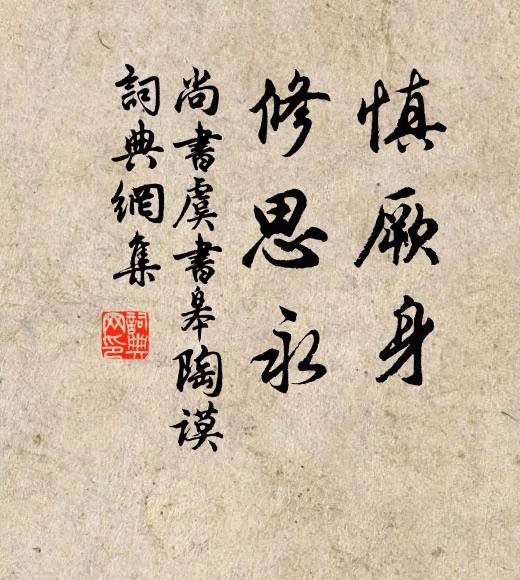 慎厥身
修思永
尚書虞書皋陶謨
詞典網集
詞典
网印